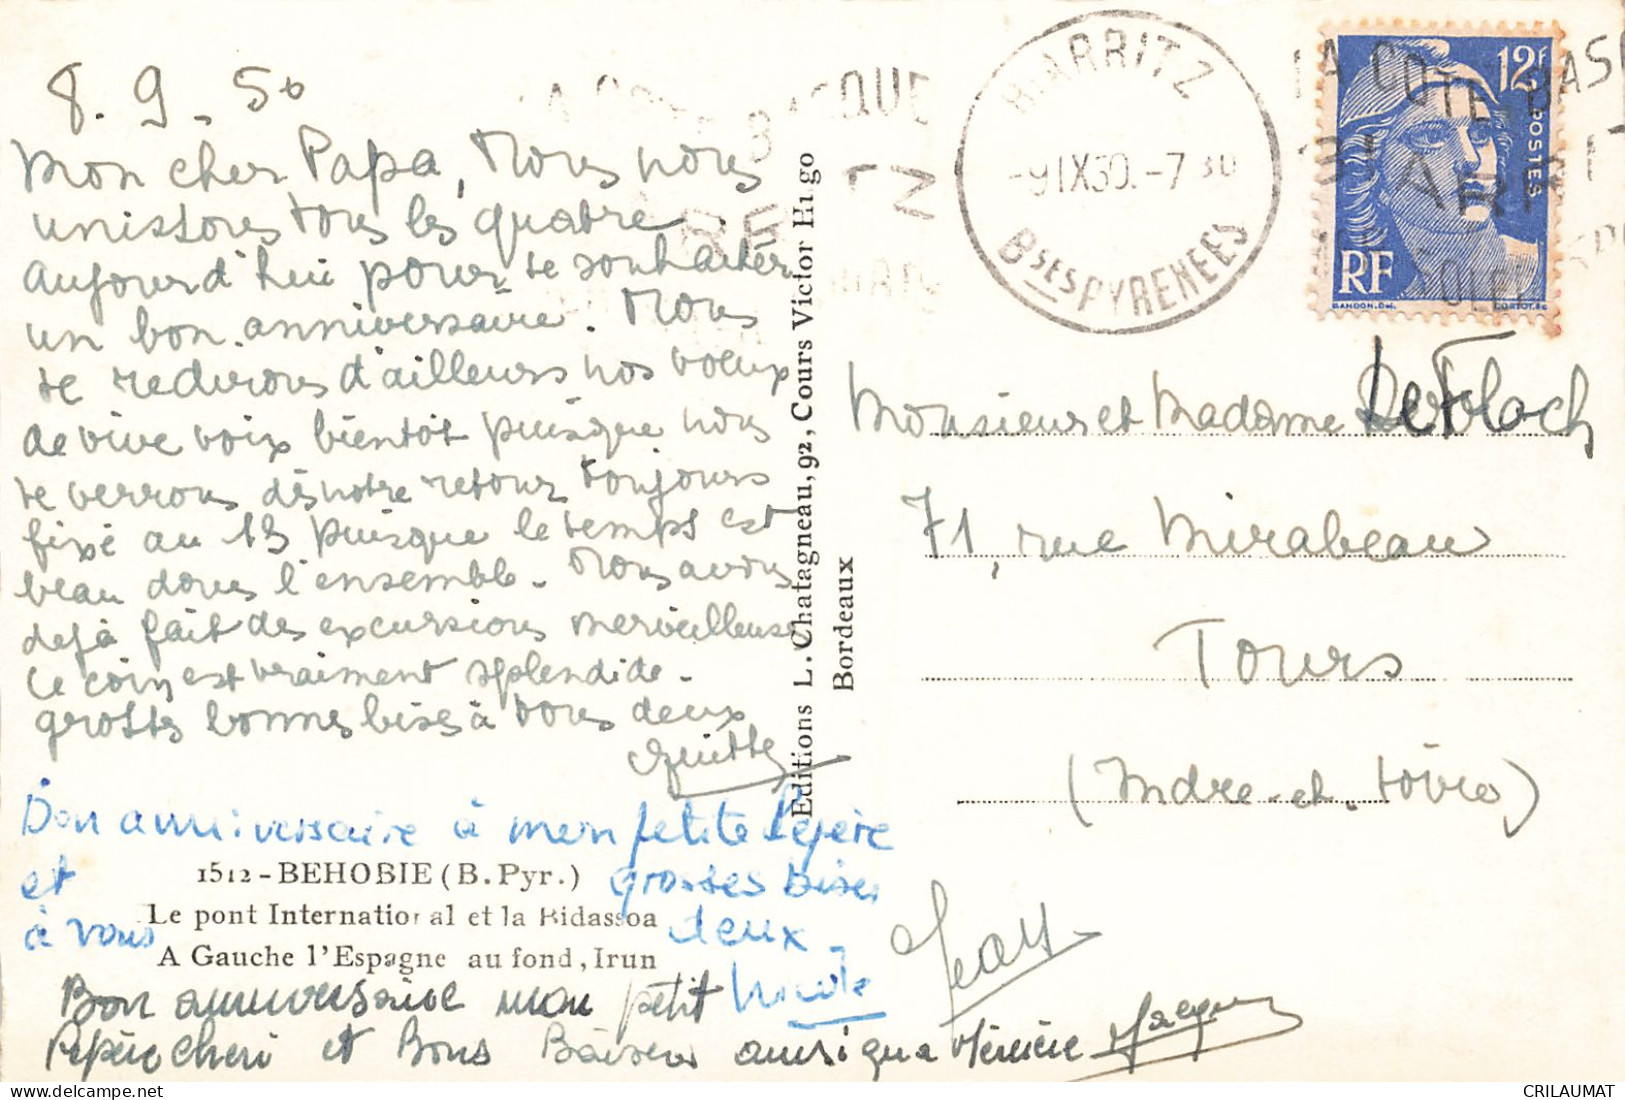 8.9.50
Mon cher Papa, Nous nous
unissons tous les quatre
aujourd'hui pour te souhaiter
un bon anniversaire. Nous
te redirons d'ailleurs nos voeux
de vive voix bientôt puisque nous
te verrons dès notre retour toujours
fixé au 13 puisque le temps est
beau dans l'ensemble. Nous avons
déjà fait des excursions merveilleuses
Ce coin est vraiment splendide.
grosses bonnes bises à vous deux
Bon anniversaire à mon petite Pépère
et grosses bises
à vous deux.
Nicole
Bon anniversaire mon petit
Pépère cheri et Bons Baisers ainsi qu a Mémère
Jean
1512 - BEHOBIE (B. Pyr.)
Le pont International et la Bidassoa
A Gauche l'Espagne au fond, Irun
Editions L. Chatagneau, 92, Cours Victor Hugo
Bordeaux
BIARRITZ
-9 IX 50.-7 30
Bses PYRENEES
LA COTE BASQUE
BIARRITZ
12F
POSTES
RF
GANDON.Del.
CORTOT.Sc
Monsieur et Madame Le Floch
71, rue Mirabeau
Tours
(Indre-et-Loire)
CRILAUMAT